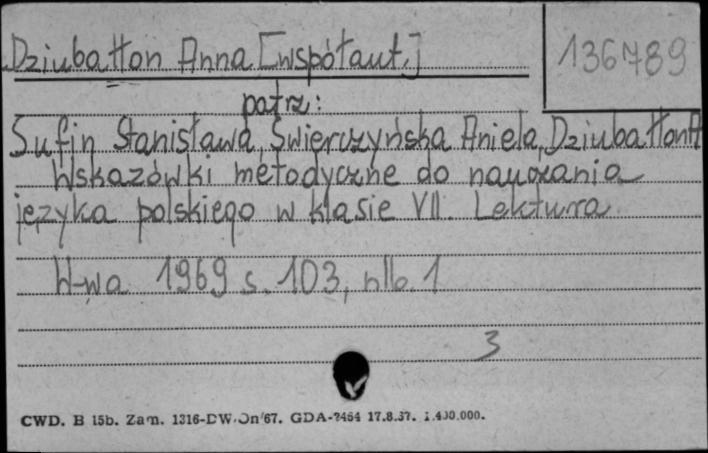 Dziubałton Anna [współaut.]
136789
patrz:
Sufin Stanisława, Świerczyńska Aniela, Dziubałton A
Wskazówki metodyczne do nauczania
języka polskiego w klasie VII. Lektura.
W-wa 1969 s. 103, nlb. 1
3
CWD. B 15b. Zam. 1316-DW/On/67. GDA-2464 17.8.67. 1.400.000.